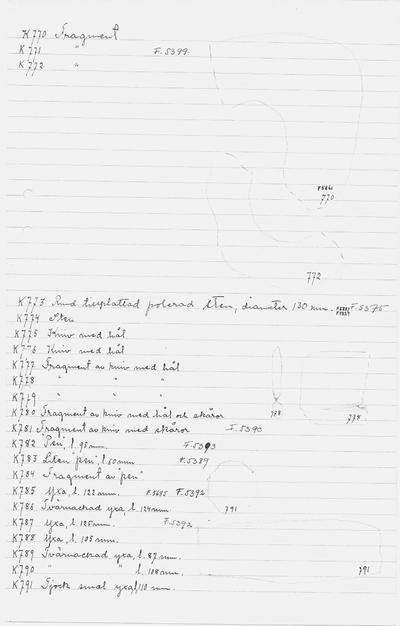 K770 Fragment
K771 " F.5399
K772 "
770
772
K773 Rund tillplattad polerad sten, diameter 130 mm. F.5375
K774 Sten
K775 Kniv med hål
K776 Kniv med hål
K777 Fragment av kniv med hål
K778 " " "
K779 " " "
K780 Fragment av kniv med hål och skåror 778 778
K781 Fragment av kniv med skåror F.5390
K782 "Pen", l. 95 mm. F.5393
K783 Liten "pen", l. 60 mm. F.5389
K784 Fragment av "pen"
K785 Yxa, l. 122 mm. F.5392
K786 Tvärnackad yxa, l. 124 mm. 791
K787 Yxa, l. 125 mm. F.5392
K788 Yxa, l. 105 mm.
K789 Tvärnackad yxa, l. 87 mm.
K790 " " l. 108 mm. 791
K791 Tjock smal yxa, l. 110 mm.